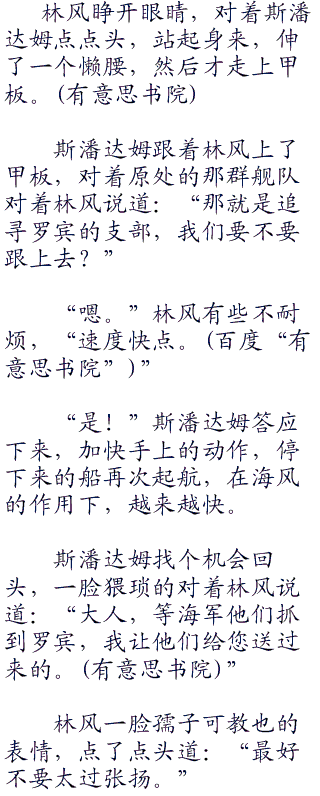 林风睁开眼睛，对着斯潘
达姆点点头，站起身来，伸
了一个懒腰，然后才走上甲
板。(有意思书院)
斯潘达姆跟着林风上了
甲板，对着原处的那群舰队
对着林风说道：“那就是追
寻罗宾的支部，我们要不要
跟上去？”
“嗯。”林风有些不耐
烦，“速度快点。(百度“有
意思书院”)”
“是！”斯潘达姆答应
下来，加快手上的动作，停
下来的船再次起航，在海风
的作用下，越来越快。
斯潘达姆找个机会回
头，一脸猥琐的对着林风说
道：“大人，等海军他们抓
到罗宾，我让他们给您送过
来的。(有意思书院)”
林风一脸孺子可教也的
表情，点了点头道：“最好
不要太过张扬。”